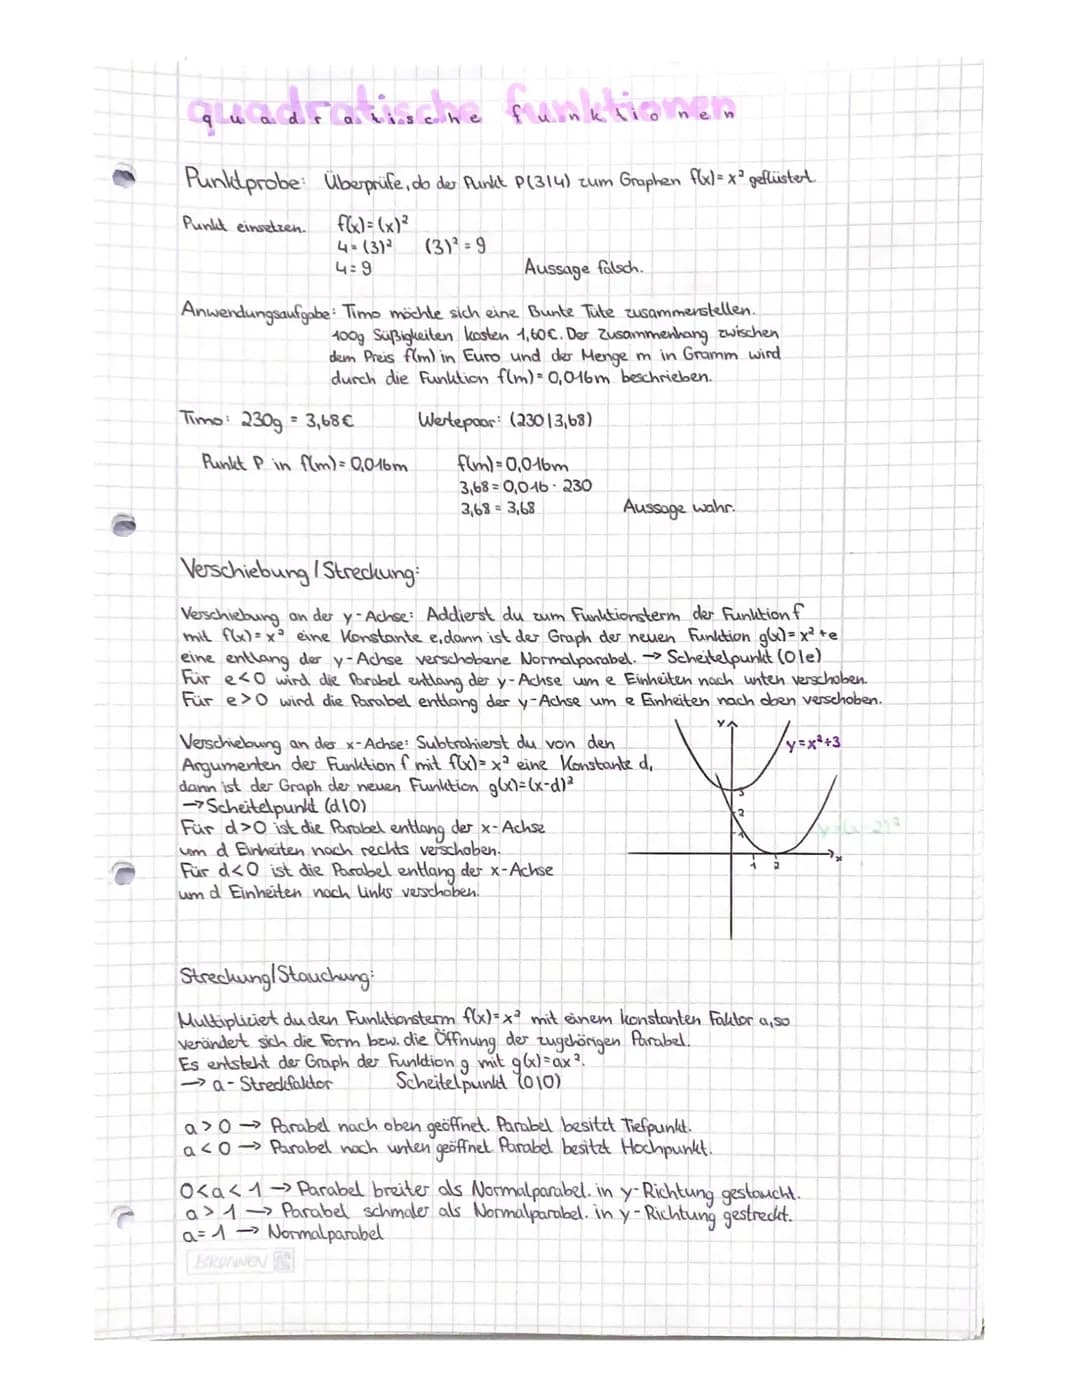 quadratische funktionen
Punktprobe: Überprüfe, ob der Punkt P(3|4) zum Graphen f(x)=x² geflüstert.
Punkt einsetzen. f(x)=(x)²
4=(3)² (3)²=9
4=9 Aussage falsch.
Anwendungsaufgabe: Timo möchte sich eine Bunte Tüte zusammenstellen.
100g Süßigkeiten kosten 1,60€. Der Zusammenhang zwischen
dem Preis f(m) in Euro und der Menge m in Gramm wird
durch die Funktion f(m)=0,016m beschrieben.
Timo: 230g = 3,68€ Wertepaar: (230|3,68)
Punkt P in f(m)=0,016m f(m)=0,016m
3,68=0,016·230
3,68=3,68 Aussage wahr.
Verschiebung/Streckung:
Verschiebung an der y-Achse: Addierst du zum Funktionsterm der Funktion f
mit f(x)=x² eine Konstante e, dann ist der Graph der neuen Funktion g(x)=x²+e
eine entlang der y-Achse verschobene Normalparabel. → Scheitelpunkt (0|e)
Für e<0 wird die Parabel entlang der y-Achse um e Einheiten nach unten verschoben.
Für e>0 wird die Parabel entlang der y-Achse um e Einheiten nach oben verschoben.
Verschiebung an der x-Achse: Subtrahierst du von den
Argumenten der Funktion f mit f(x)=x² eine Konstante d,
dann ist der Graph der neuen Funktion g(x)=(x-d)²
→ Scheitelpunkt (d|0)
Für d>0 ist die Parabel entlang der x-Achse
um d Einheiten nach rechts verschoben.
Für d<0 ist die Parabel entlang der x-Achse
um d Einheiten nach links verschoben.
y
y=x²+3
3
2
1
y=(x-2)²
1 2 x
Streckung/Stauchung:
Multipliciert du den Funktionsterm f(x)=x² mit einem konstanten Faktor a, so
verändert sich die Form bzw. die Öffnung der zugehörigen Parabel.
Es entsteht der Graph der Funktion g mit g(x)=ax².
→ a - Streckfaktor Scheitelpunkt (0|0)
a>0 → Parabel nach oben geöffnet. Parabel besitzt Tiefpunkt.
a<0 → Parabel nach unten geöffnet. Parabel besitzt Hochpunkt.
0<a<1 → Parabel breiter als Normalparabel. in y-Richtung gestaucht.
a>1 → Parabel schmaler als Normalparabel. in y-Richtung gestreckt.
a=1 → Normalparabel
BRUNNEN